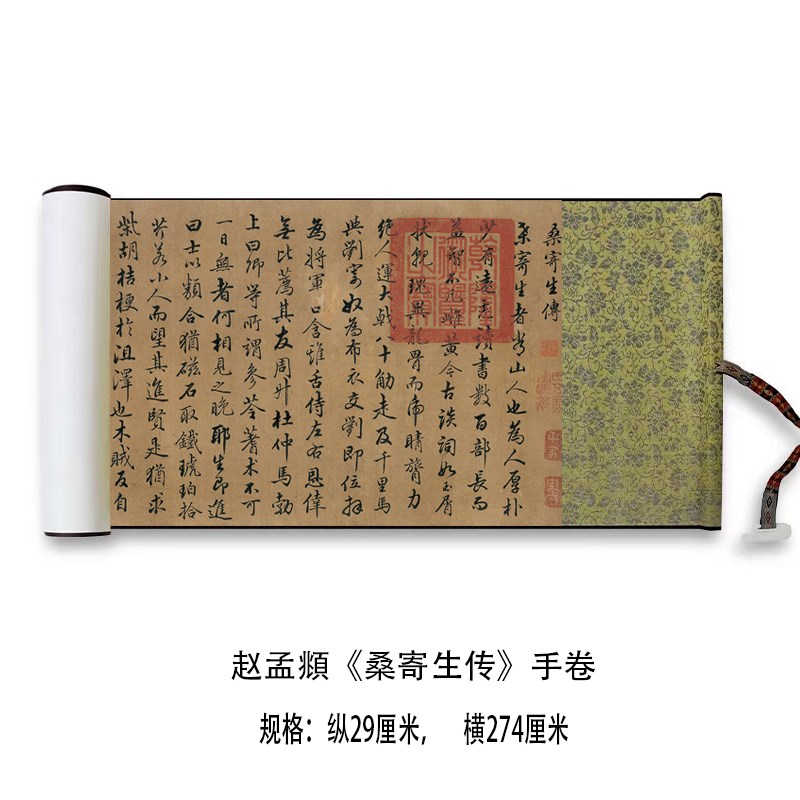 桑寄生傳
桑寄生者常山人也為人厚朴
少有遠志讀書數百部長而
益智不凡雌黃今古談詞如玉屑
狀貌瑰異龍骨而虎睛膂力
絕人運大戟八十觔走及千里馬
與劉寄奴為布衣交劉即位拜
為將軍口含雞舌侍左右恩倖
無比薦其友周升杜仲馬勃
上曰卿等所謂參苓蓍朮不可
一日無者何相見之晚耶生即進
曰士以類合猶磁石取鐵琥珀拾
芥若小人而望其進賢是猶求
柴胡桔梗於沮澤也木賊反自
赵孟頫《桑寄生传》手卷
规格：纵29厘米， 横274厘米